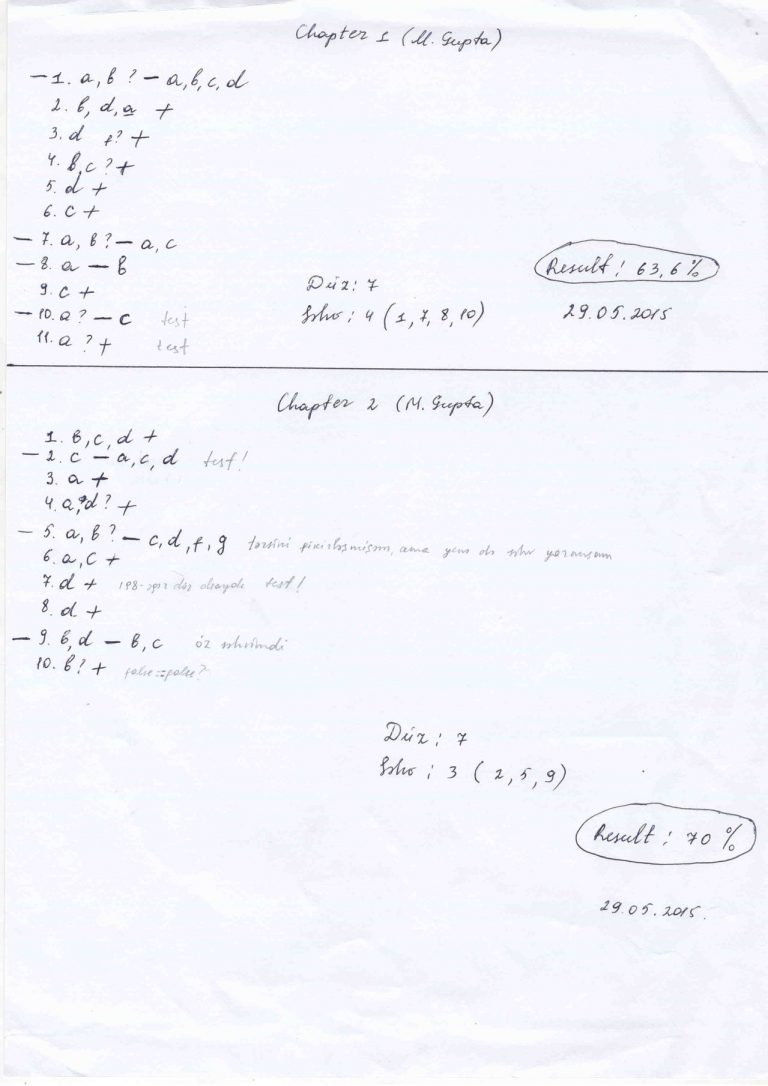 Chapter 1 (M. Gupta)
– 1. a, b ? – a, b, c, d
2. b, d, a +
3. d f? +
4. b, c ? +
5. d +
6. c +
– 7. a, b ? – a, c
– 8. a – b
9. c +
– 10. a ? – c test
11. a ? + test
Düz : 7
Səhv : 4 (1, 7, 8, 10)
Result : 63,6 %
29.05.2015
Chapter 2 (M. Gupta)
1. b, c, d +
– 2. c – a, c, d test!
3. a +
4. a, d ? +
– 5. a, b ? – c, d, f, g tərsini fikirləşmişəm, ama yenə də səhv yazmışam
6. a, c +
7. d + 198- test!
8. d +
– 9. b, d – b, c öz səhvimdi
10. b ? + false==false?
Düz : 7
Səhv : 3 (2, 5, 9)
Result : 70 %
29.05.2015.